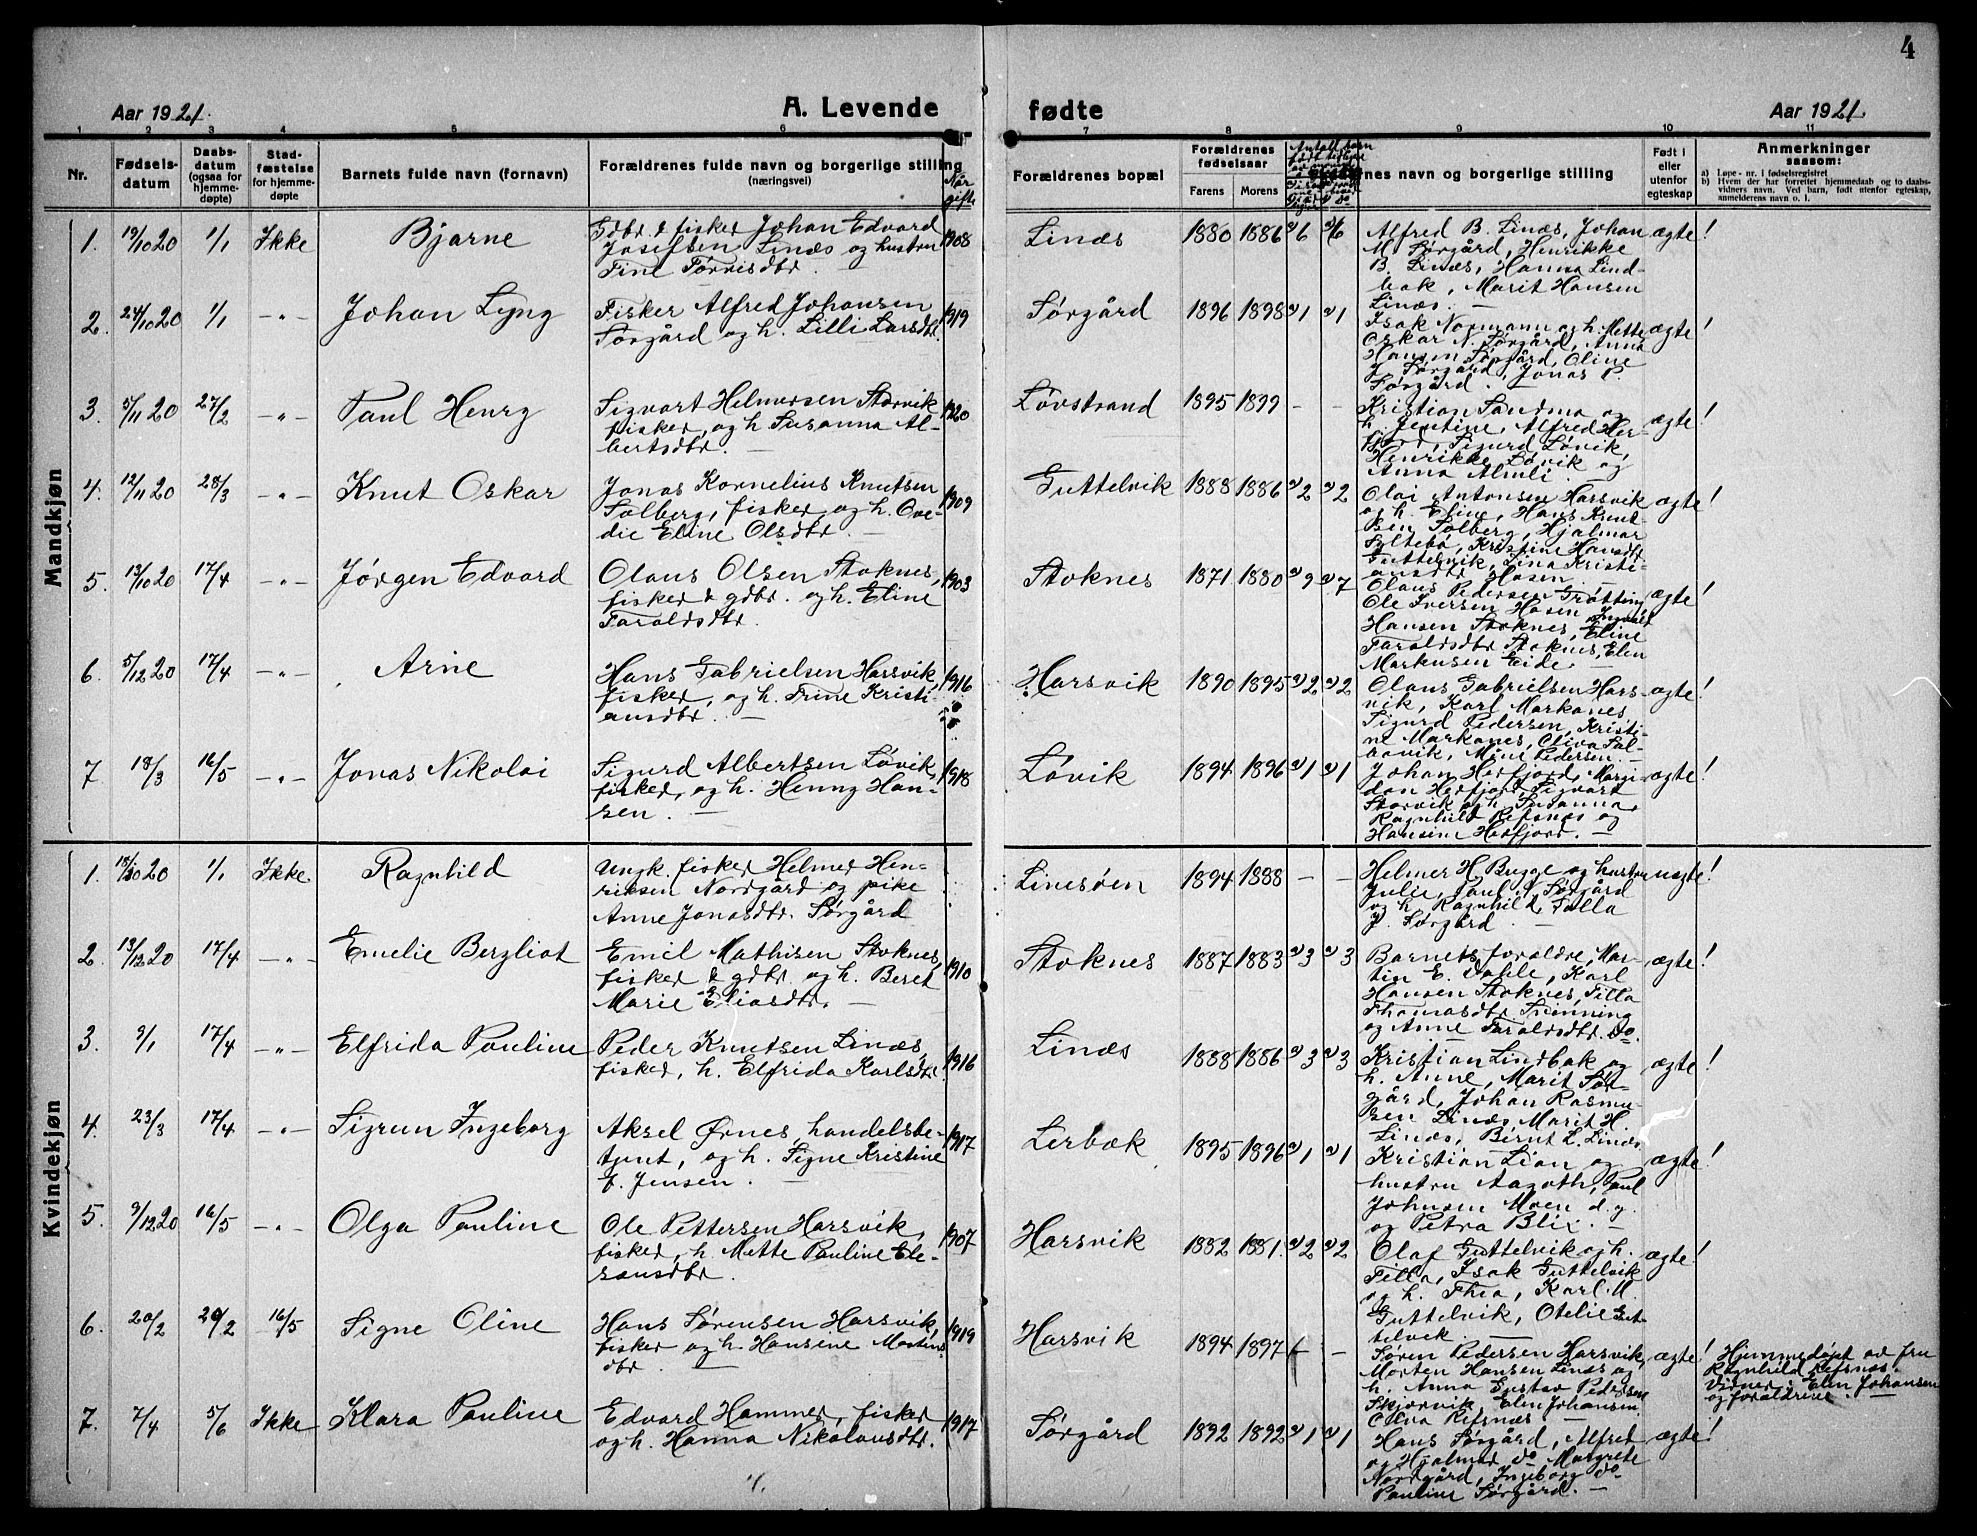 4
Aar 1921.
A. Levende
fødte
Aar 1921.
1 2 3 4 5 6 7 8 9 10 11
Nr.
Fødsels-
datum
Daabs-
datum
(ogsaa for
hjemme-
døpte)
Stad-
fæstelse
for hjemme-
døpte
Barnets fulde navn (fornavn)
Forældrenes fulde navn og borgerlige stilling
(næringsvei)
Når
gifte
Forældrenes bopæl
Forældrenes
fødselsaar
Farens
Morens
nes navn og borgerlige stilling
Født i
eller
utenfor
egteskap
Anmerkninger
saasom:
a) Løpe-nr. i fødselsregistret
b) Hvem der har forrettet hjemmedaab og to daabs-
vidners navn. Ved barn, født utenfor egteskap,
anmelderens navn o. l.
Mandkjøn
1. 19/10 20 1/1 Ikke Bjarne
Gdbr. & fisker Johan Edvard
Josefsen Linæs og hustru
Fine Tørrisdtr.
1908 Linæs 1880 1886 6 6
Alfred B. Linæs, Johan
M. Sørgård, Henrikke
B. Linæs, Hanna Lind-
bak, Marit Hansen
Linæs.
ægte!
2. 24/10 20 1/1 -"- Johan Lyng
Fisker Alfred Johansen
Sørgård og h. Lilli Larsdtr.
1919 Sørgård 1896 1898 1 1
Isak Normann og h. Mette
Oskar N. Sørgård, Anna
Hansen Sørgård, Oline
J. Sørgård, Jonas P.
Sørgård.
ægte!
3. 5/11 20 27/2 -"- Paul Henry
Sigvart Helmersen Storvik
fisker, og h. Susanna Al-
bertsdtr.
1920 Løvstrand 1895 1899 - -
Kristian Sandmo og
h. Jentine, Alfred Her-
fjord, Sigurd Løvik,
Henrikke Løvik og
Anna Almli.
ægte!
4. 12/11 20 28/3 -"- Knut Oskar
Jonas Kornelius Knutsen
Solberg, fisker, og h. Ove-
die Eline Olsdtr.
1909 Guttelvik 1888 1886 2 2
Olai Antonsen Harsvik
og h. Eline, Hans Knut-
sen Solberg, Hjalmar
Syltebø, Kristine Hansdtr
Guttelvik, Lina Kristi-
ansdtr Hosen.
ægte!
5. 13/10 20 17/4 -"- Jørgen Edvard
Olaus Olsen Stoknes,
fisker & gdbr. og h. Eline
Taraldsdtr.
1903 Stoknes 1871 1880 9 7
Olaus Pedersen Trøtting,
Ole Iversen Hosen,
Hansen Stoknes, Eline
Taraldsdtr Stoknes, Elen
Markussen Eide.
ægte!
6. 5/12 20 17/4 -"- Arne
Hans Gabrielsen Harsvik,
fisker, og h. Trine Kristi-
ansdtr.
1916 Harsvik 1890 1895 2 2
Olaus Gabrielsen Hars-
vik, Karl Markanes
Sigurd Pedersen, Kristi-
ne Markanes, Oliva Sal-
, Pedersen.
ægte!
7. 18/3 16/5 -"- Jonas Nikolai
Sigurd Albertsen Løvik,
fisker, og h. Henny Han-
sen.
1918 Løvik 1894 1896 1 1
Johan Herfjord, Margi-
don Herfjord, Sigvart
Storvik og h. Susanna,
Ragnhild Refsnes og
Hansine Herfjord.
ægte!
Kvindekjøn
1. 18/10 20 1/1 Ikke Ragnhild
Ungk. fisker Helmer Hen-
riksen Nordgård og pike
Anne Jonasdtr. Sørgård
Linesøen 1894 1888 - -
Helmer H. Bugge og hustru
Julie, Paul A. Sørgård
og h. Ragnhild, Tolla
J. Sørgård.
uægte!
2. 13/12 20 17/4 -"- Emelie Bergliot
Emil Mathisen Stoknes,
fisker & gdbr. og h. Beret
Marie Eliasdtr.
1910 Stoknes 1887 1883 3 3
Barnets foræld​re, Mar-
tin E. Dahle, Karl
Hansen Stoknes, Tilla
Thomasdtr. Tvinning
og Anne Taraldsdtr. Do.
ægte!
3. 9/1 17/4 -"- Elfrida Pauline
Peder Knutsen Linæs,
fisker, h. Elfrida Karlsdtr.
1916 Linæs 1888 1886 3 3
Kristian Lindbak og
h. Anne, Marit Sør-
gård, Johan Rasmu-
sen Linæs, Marit H.
Linæs, Bernt L. Linæs.
ægte!
4. 23/3 17/4 -"- Sigrun Ingeborg
Aksel Ørnes, handelsbe-
tjent, og h. Signe Kristine
f. Jensen.
1917 Lerbæk 1895 1896 1 1
Kristian Lian og
hustru Aagoth, Paul
Johnsen Moen d.y.
og Petra Blix.
ægte!
5. 9/12 20 16/5 -"- Olga Pauline
Ole Pettersen Harsvik,
fisker, h. Mette Pauline Ele-
sæusdtr.
1907 Harsvik 1882 1881. 2 2
Olaf Guttelvik og h.
Tilla, Isak Guttelvik
og h. Thea, Karl M.
Guttelvik, Otelie Gut-
telvik.
ægte!
6. 20/2 20/2 16/5 Signe Oline
Hans Sørensen Harsvik,
fisker og h. Hansine Mortens
dtr.
1919 Harsvik 1894 1897 - -
Søren Pedersen Harsvik,
Morten Hansen Linæs og
h. Anna, Gustav Pedersen
Skjørvik, Elen Johansen
Olva Refsnæs.
ægte!
Hjemmedøpt av fru
Ragnhild Refsnæs.
Vidner: Elen Johansen
og forældrene.
7. 7/4 5/6 Ikke Klara Pauline
Edvard Hammer, fisker
og h. Hanna Nikolausdtr.
1917 Sørgård 1892 1892 1 1
Hans Sørgård, Alfred
og Hjalmer do Margrete
Nordgård, Ingeborg do
Pauline Sørgård.
ægte!